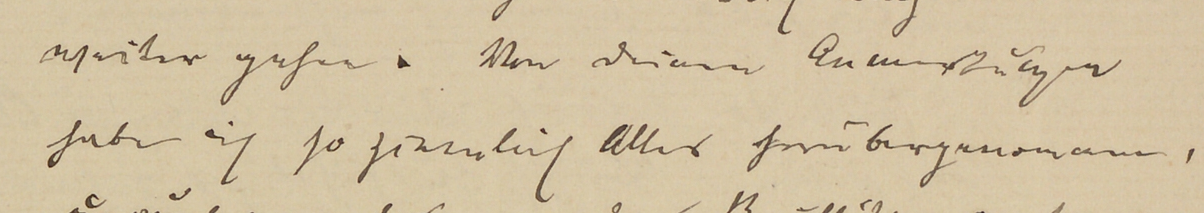 weiter gehen. Von deinen Anmerkungen
habe ich so ziemlich Alles herübergenommen,